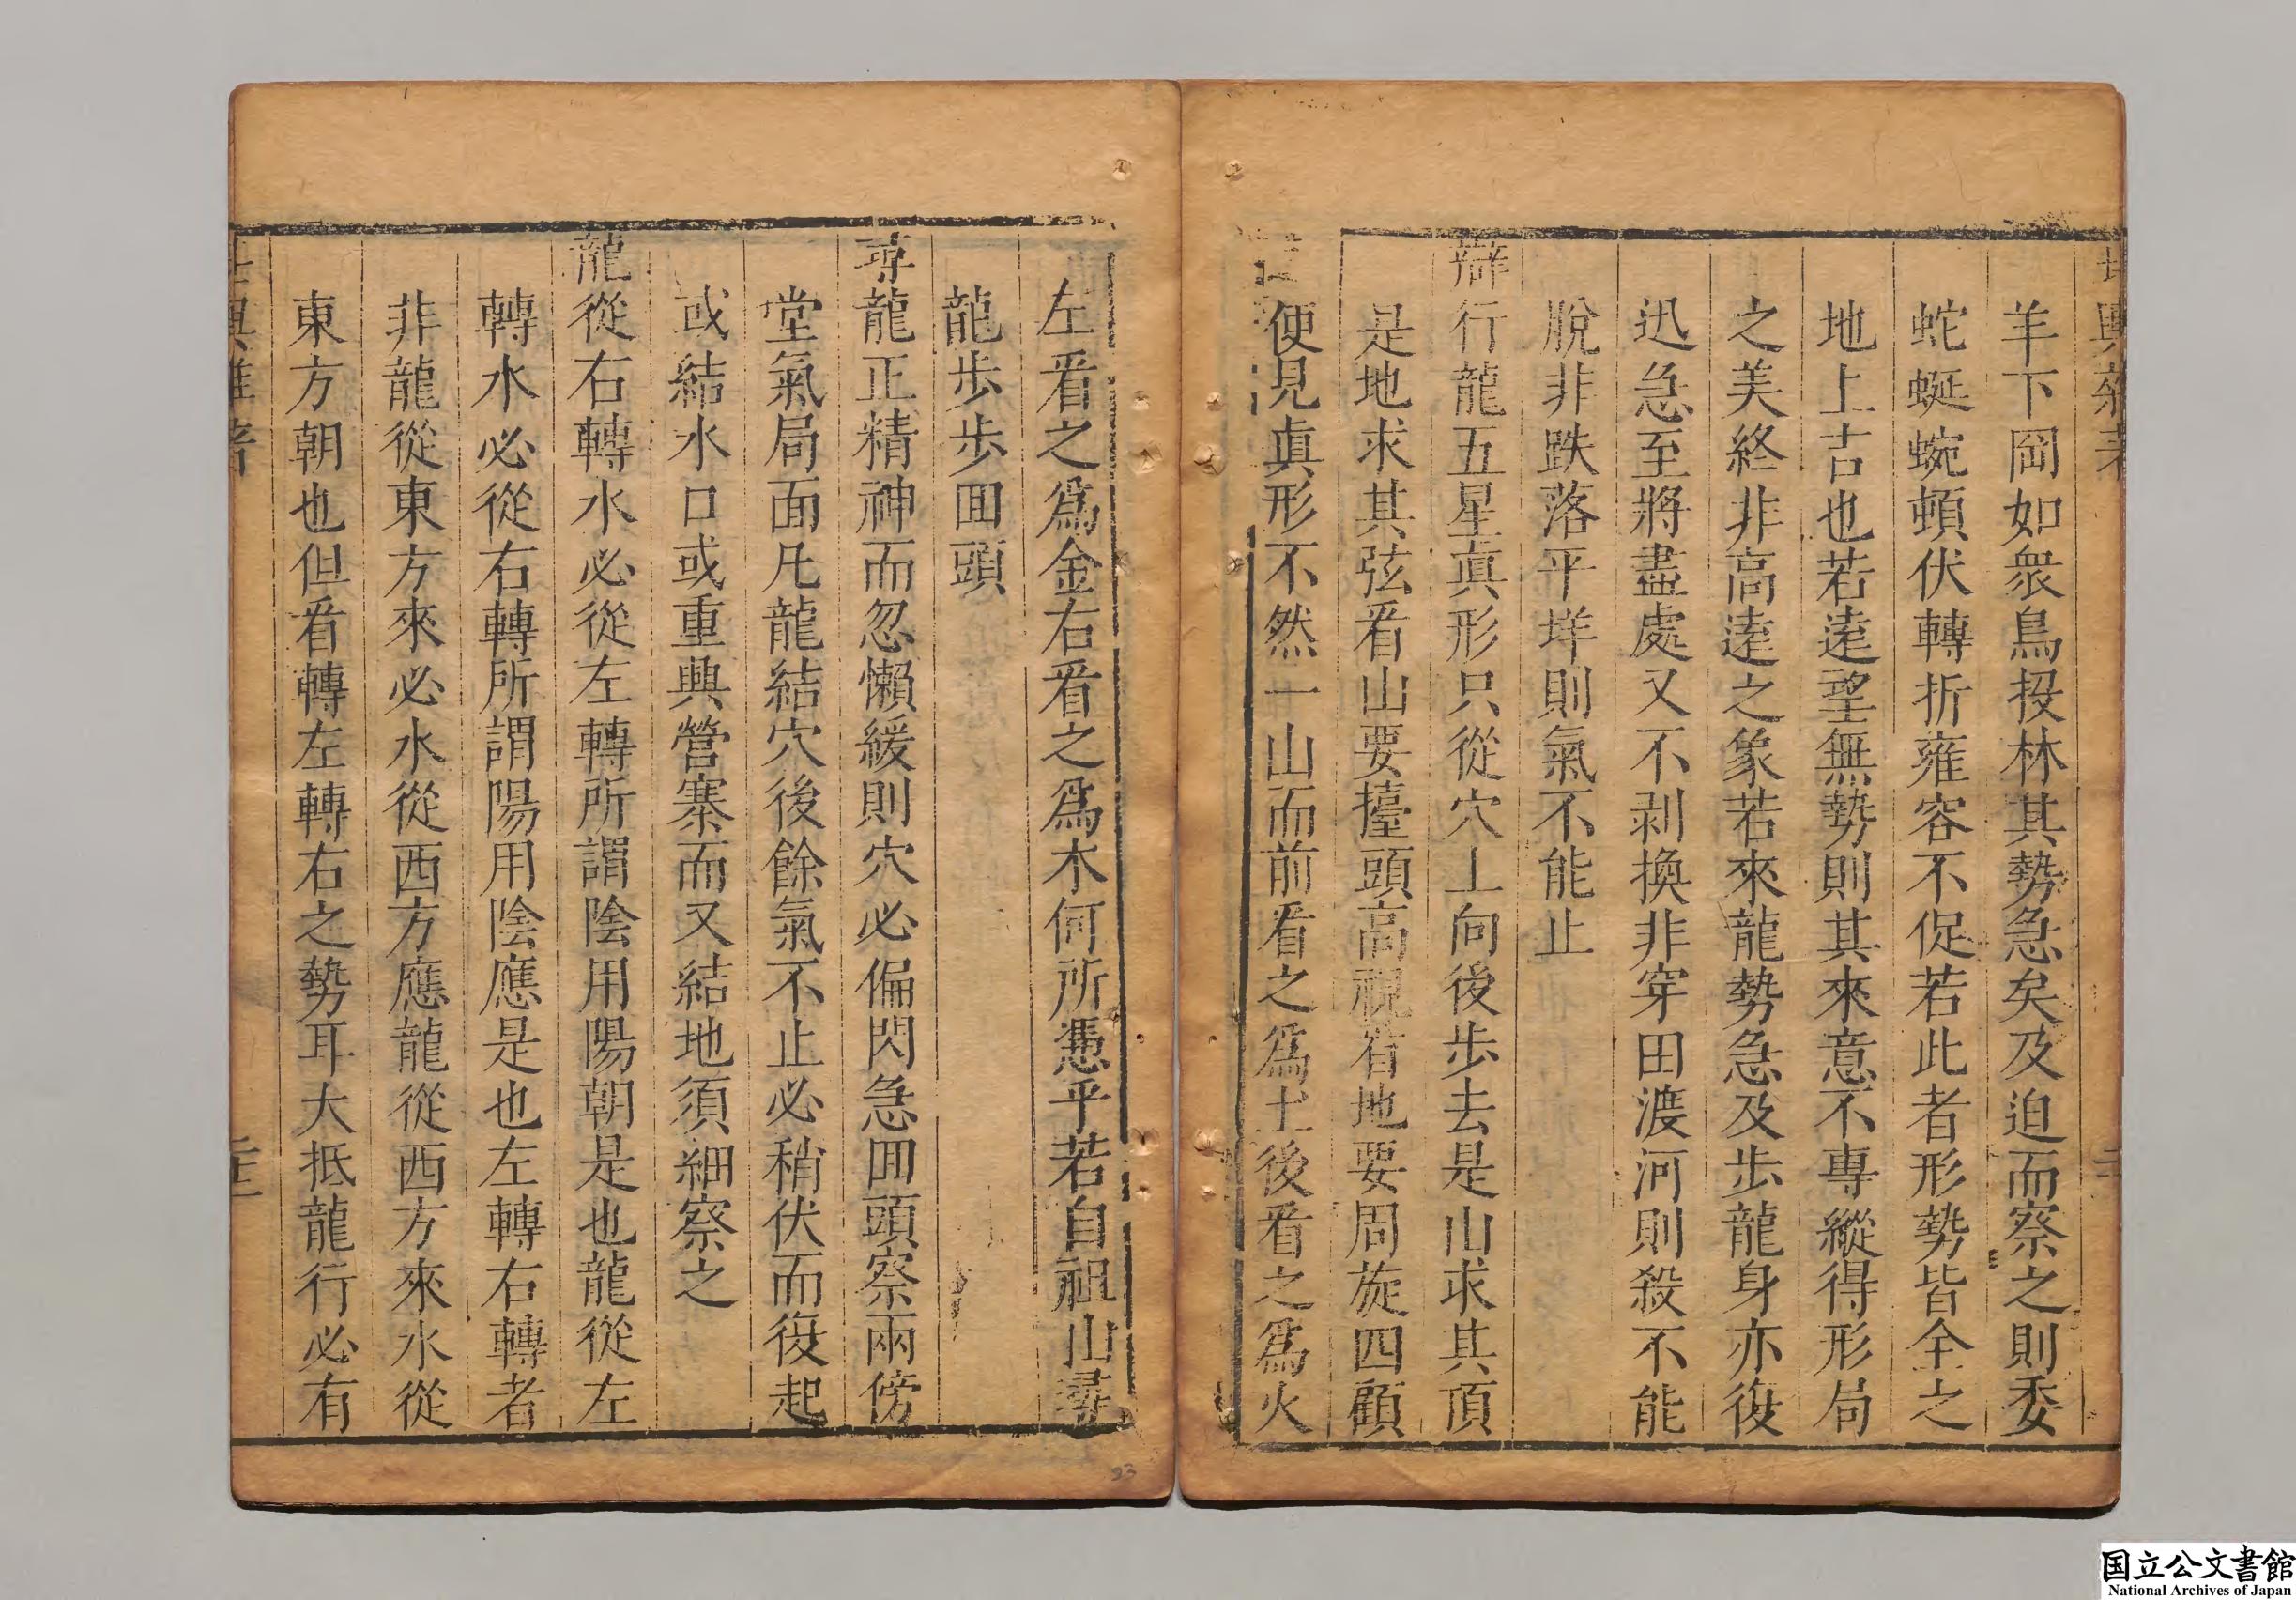 羊下岡如衆鳥投林其勢急矣及迫而察之則委
蛇蜒蜿頓伏轉折雍容不促若此者形勢皆全之
地上吉也若逺望無勢則其來意不專縱得形局
之美終非高逺之象若來龍勢急及步龍身亦復
迅急至將盡處又不剥換非穿田渡河則殺不能
脫非跌落平垟則氣不能止
辯行龍五星真形只從穴上向後步去是山求其頂
是地求其弦看山要擡頭高視看地要周旋四顧
使見真形不然一山而前看之爲土後看之爲火
左看之爲金右看之爲木何所憑乎若自祖山尋
龍步步囬頭
尋龍正精神而忽懶緩則穴必偏閃急囬頭察兩傍
堂氣局面凡龍結穴後餘氣不止必稍伏而復起
或結水口或重興營寨而又結地須細察之
龍從右轉水必從左轉所謂陰用陽朝是也龍從左
轉水必從右轉所謂陽用陰應是也左轉右轉者
非龍從東方來必水從西方應龍從西方來水從
東方朝也但看轉左轉右之勢耳大抵龍行必有
国立公文書館
National Archives of Japan